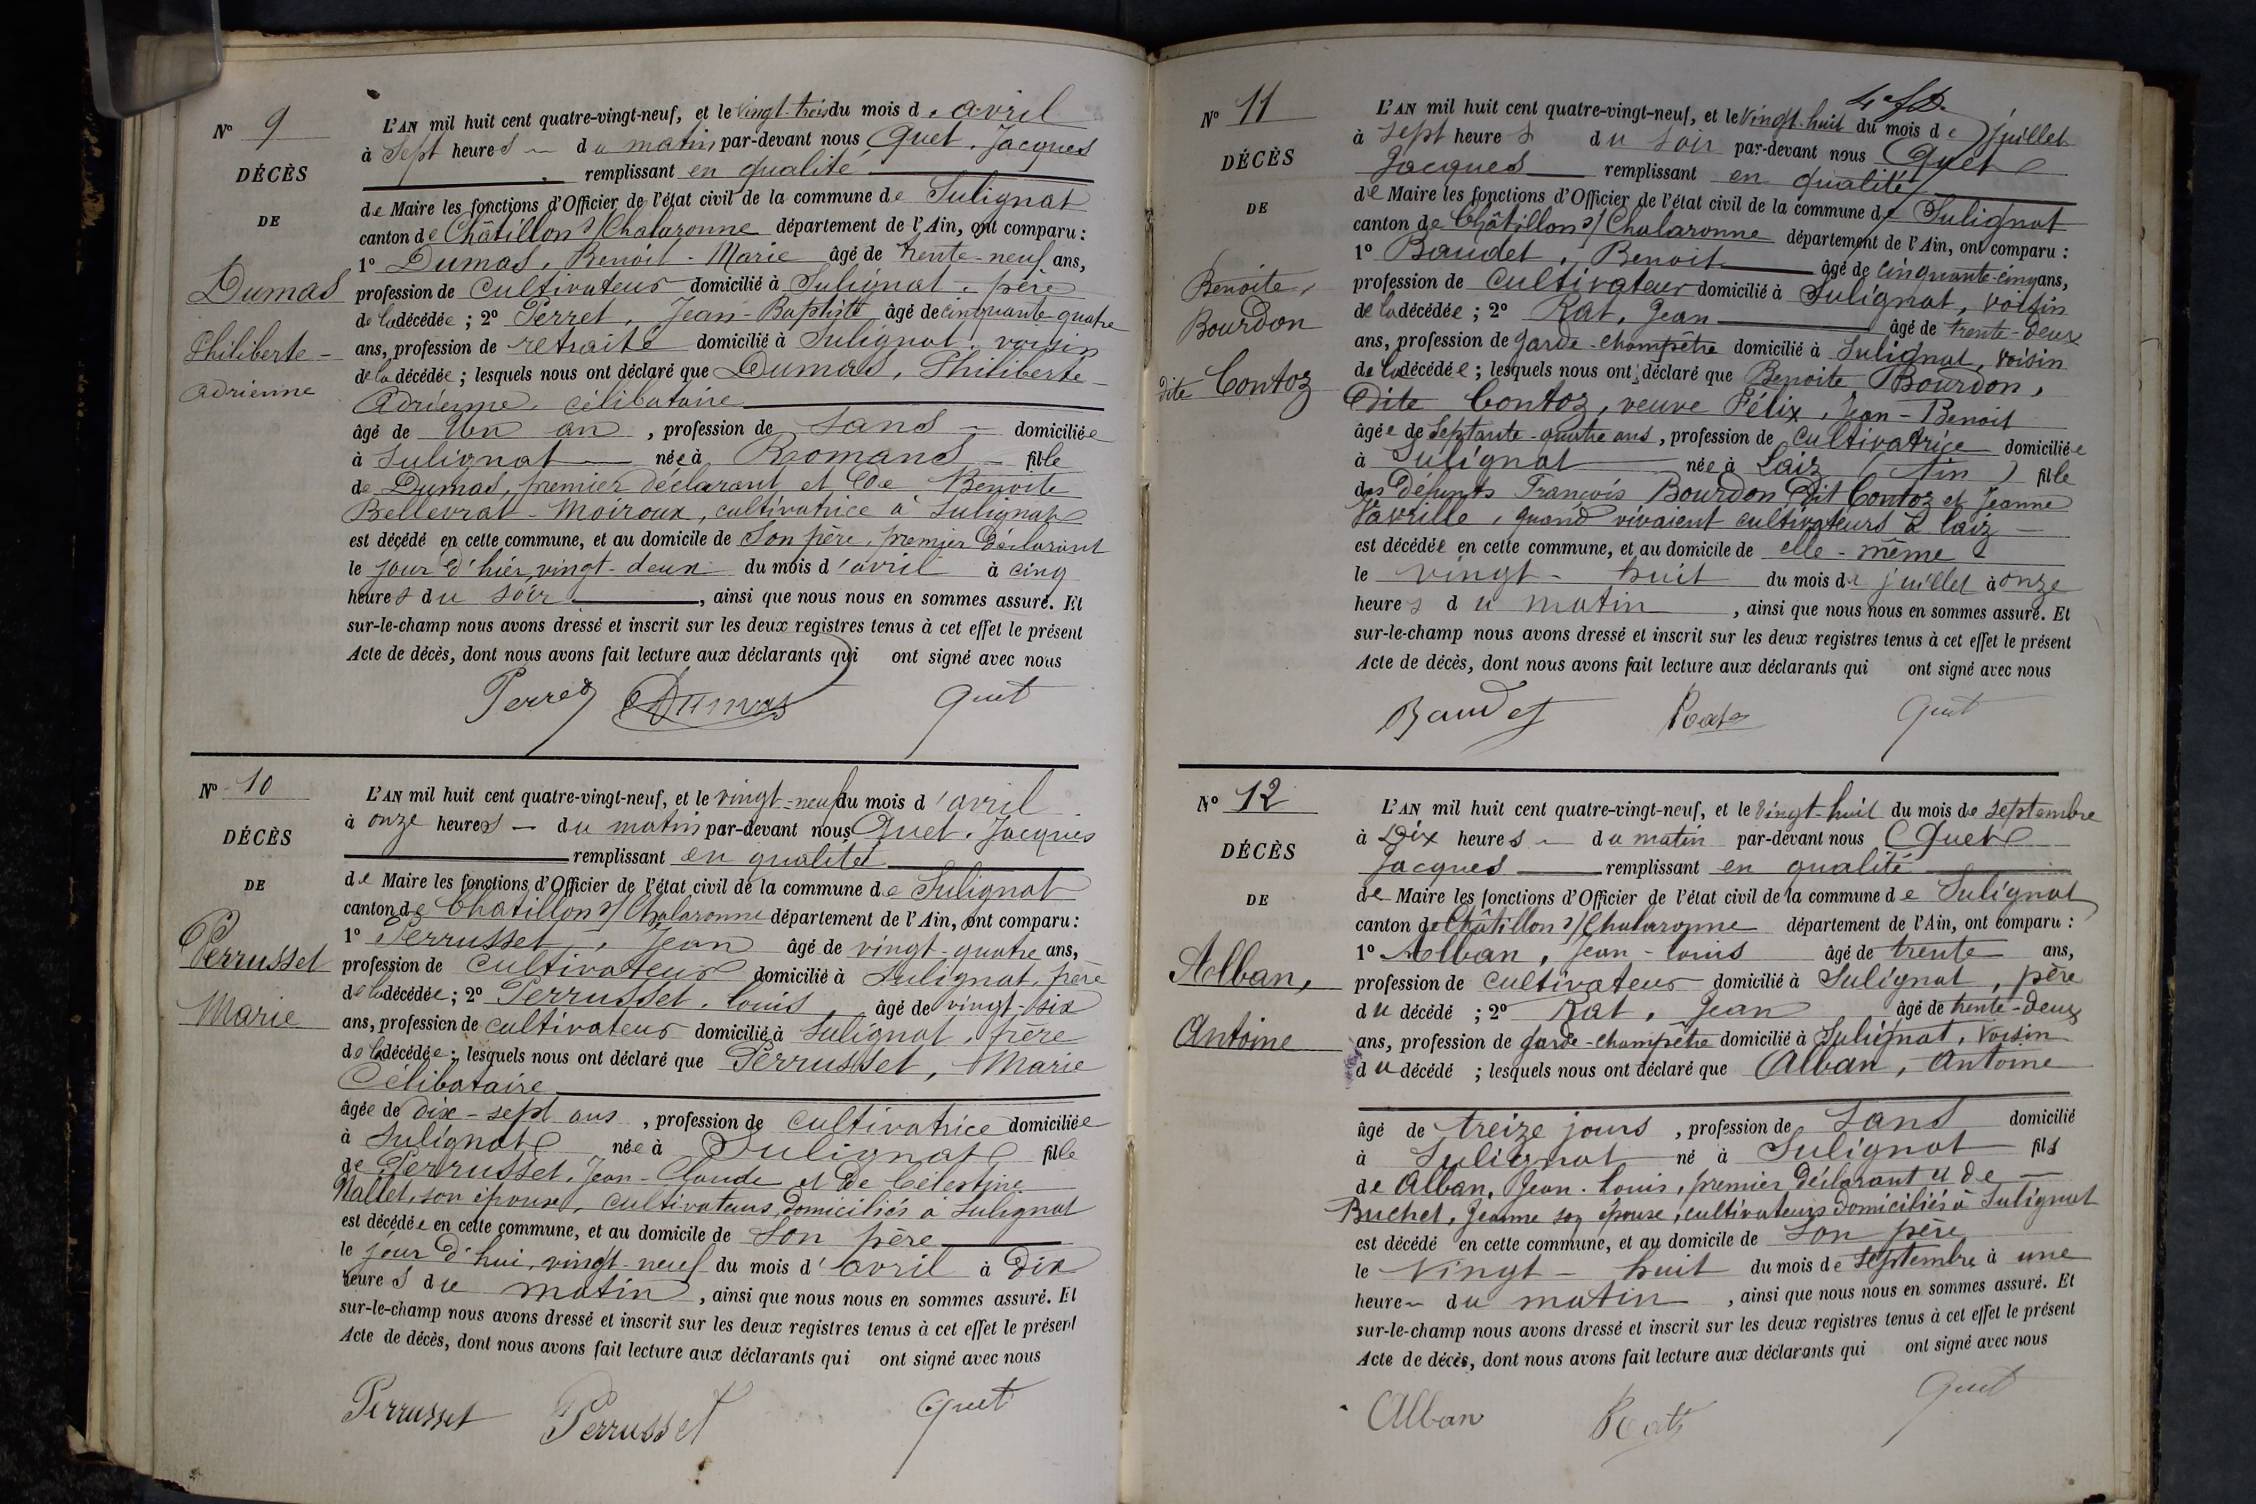 N° 9
DÉCÈS
DE
Dumas
Philiberte -
Adrienne
L'AN mil huit cent quatre-vingt-neuf, et le vingt-trois du mois d'avril
à sept heures du matin par-devant nous Quet, Jacques
remplissant en qualité
de Maire les fonctions d'Officier de l'état civil de la commune de Sulignat
canton de Châtillon s/Chalaronne département de l'Ain, ont comparu :
1° Dumas, Benoit-Marie âgé de trente-neuf ans,
profession de cultivateur domicilié à Sulignat, père
de la décédée ; 2° Perret, Jean-Baptiste âgé de cinquante-quatre
ans, profession de retraité domicilié à Sulignat, voisin
de la décédée ; lesquels nous ont déclaré que Dumas, Philiberte-
Adrienne, célibataire
âgé de un an, profession de sans domiciliée
à Sulignat née à Romans fille
de Dumas, premier déclarant et de Benoite
Bellevrat-Moiroux, cultivatrice à Sulignat
est décédé en cette commune, et au domicile de son père, premier déclarant
le jour d'hier, vingt-deux du mois d'avril à cinq
heures du soir, ainsi que nous nous en sommes assuré. Et
sur-le-champ nous avons dressé et inscrit sur les deux registres tenus à cet effet le présent
Acte de décès, dont nous avons fait lecture aux déclarants qui ont signé avec nous
Perret Dumas Quet
N° 10
DÉCÈS
DE
Perrusset
Marie
L'AN mil huit cent quatre-vingt-neuf, et le vingt-neuf du mois d'avril
à onze heures du matin par-devant nous Quet, Jacques
remplissant en qualité
de Maire les fonctions d'Officier de l'état civil de la commune de Sulignat
canton de Châtillon s/Chalaronne département de l'Ain, ont comparu :
1° Perrusset, Jean âgé de vingt-quatre ans,
profession de cultivateur domicilié à Sulignat, père
de la décédée ; 2° Perrusset, Louis âgé de vingt-six
ans, profession de cultivateur domicilié à Sulignat, frère
de la décédée ; lesquels nous ont déclaré que Perrusset, Marie
Célibataire
âgée de dix-sept ans, profession de cultivatrice domiciliée
à Sulignat née à Sulignat fille
de Perrusset, Jean-Claude et de Célestine
Nallet, son épouse, cultivateurs, domiciliés à Sulignat
est décédée en cette commune, et au domicile de son père
le jour d'hui, vingt-neuf du mois d'avril à dix
heures du matin, ainsi que nous nous en sommes assuré. Et
sur-le-champ nous avons dressé et inscrit sur les deux registres tenus à cet effet le présent
Acte de décès, dont nous avons fait lecture aux déclarants qui ont signé avec nous
Perrusset Perrusset Quet
N° 11
DÉCÈS
DE
Benoite,
Bourdon
dite Contoz
L'AN mil huit cent quatre-vingt-neuf, et le vingt-huit du mois de juillet
à sept heures du soir par-devant nous Quet
Jacques remplissant en qualité
de Maire les fonctions d'Officier de l'état civil de la commune de Sulignat
canton de Châtillon s/Chalaronne département de l'Ain, ont comparu :
1° Baudet, Benoit âgé de cinquante-cinq ans,
profession de cultivateur domicilié à Sulignat, voisin
de la décédée ; 2° Rat, Jean âgé de trente-deux
ans, profession de garde-champêtre domicilié à Sulignat, voisin
de la décédée ; lesquels nous ont déclaré que Benoite Bourdon,
dite Contoz, veuve Félix, Jean-Benoit
âgée de septante-quatre ans, profession de cultivatrice domiciliée
à Sulignat née à Laiz (Ain) fille
des défunts François Bourdon dit Contoz et Jeanne
Favrille, quand vivaient cultivateurs à Laiz
est décédée en cette commune, et au domicile de elle-même
le vingt-huit du mois de juillet à onze
heures du matin, ainsi que nous nous en sommes assuré. Et
sur-le-champ nous avons dressé et inscrit sur les deux registres tenus à cet effet le présent
Acte de décès, dont nous avons fait lecture aux déclarants qui ont signé avec nous
Baudet Rat Quet
N° 12
DÉCÈS
DE
Alban,
Antoine
L'AN mil huit cent quatre-vingt-neuf, et le vingt-huit du mois de septembre
à dix heures du matin par-devant nous Quet
Jacques remplissant en qualité
de Maire les fonctions d'Officier de l'état civil de la commune de Sulignat
canton de Châtillon s/Chalaronne département de l'Ain, ont comparu :
1° Alban, Jean-Louis âgé de trente ans,
profession de cultivateur domicilié à Sulignat, père
du décédé ; 2° Rat, Jean âgé de trente-deux
ans, profession de garde-champêtre domicilié à Sulignat, voisin
du décédé ; lesquels nous ont déclaré que Alban, Antoine
âgé de treize jours, profession de sans domicilié
à Sulignat né à Sulignat fils
de Alban, Jean-Louis, premier déclarant et de
Buchet, Jeanne son épouse, cultivateurs domiciliés à Sulignat
est décédé en cette commune, et au domicile de son père
le vingt-huit du mois de septembre à une
heure du matin, ainsi que nous nous en sommes assuré. Et
sur-le-champ nous avons dressé et inscrit sur les deux registres tenus à cet effet le présent
Acte de décès, dont nous avons fait lecture aux déclarants qui ont signé avec nous
Alban Rat Quet